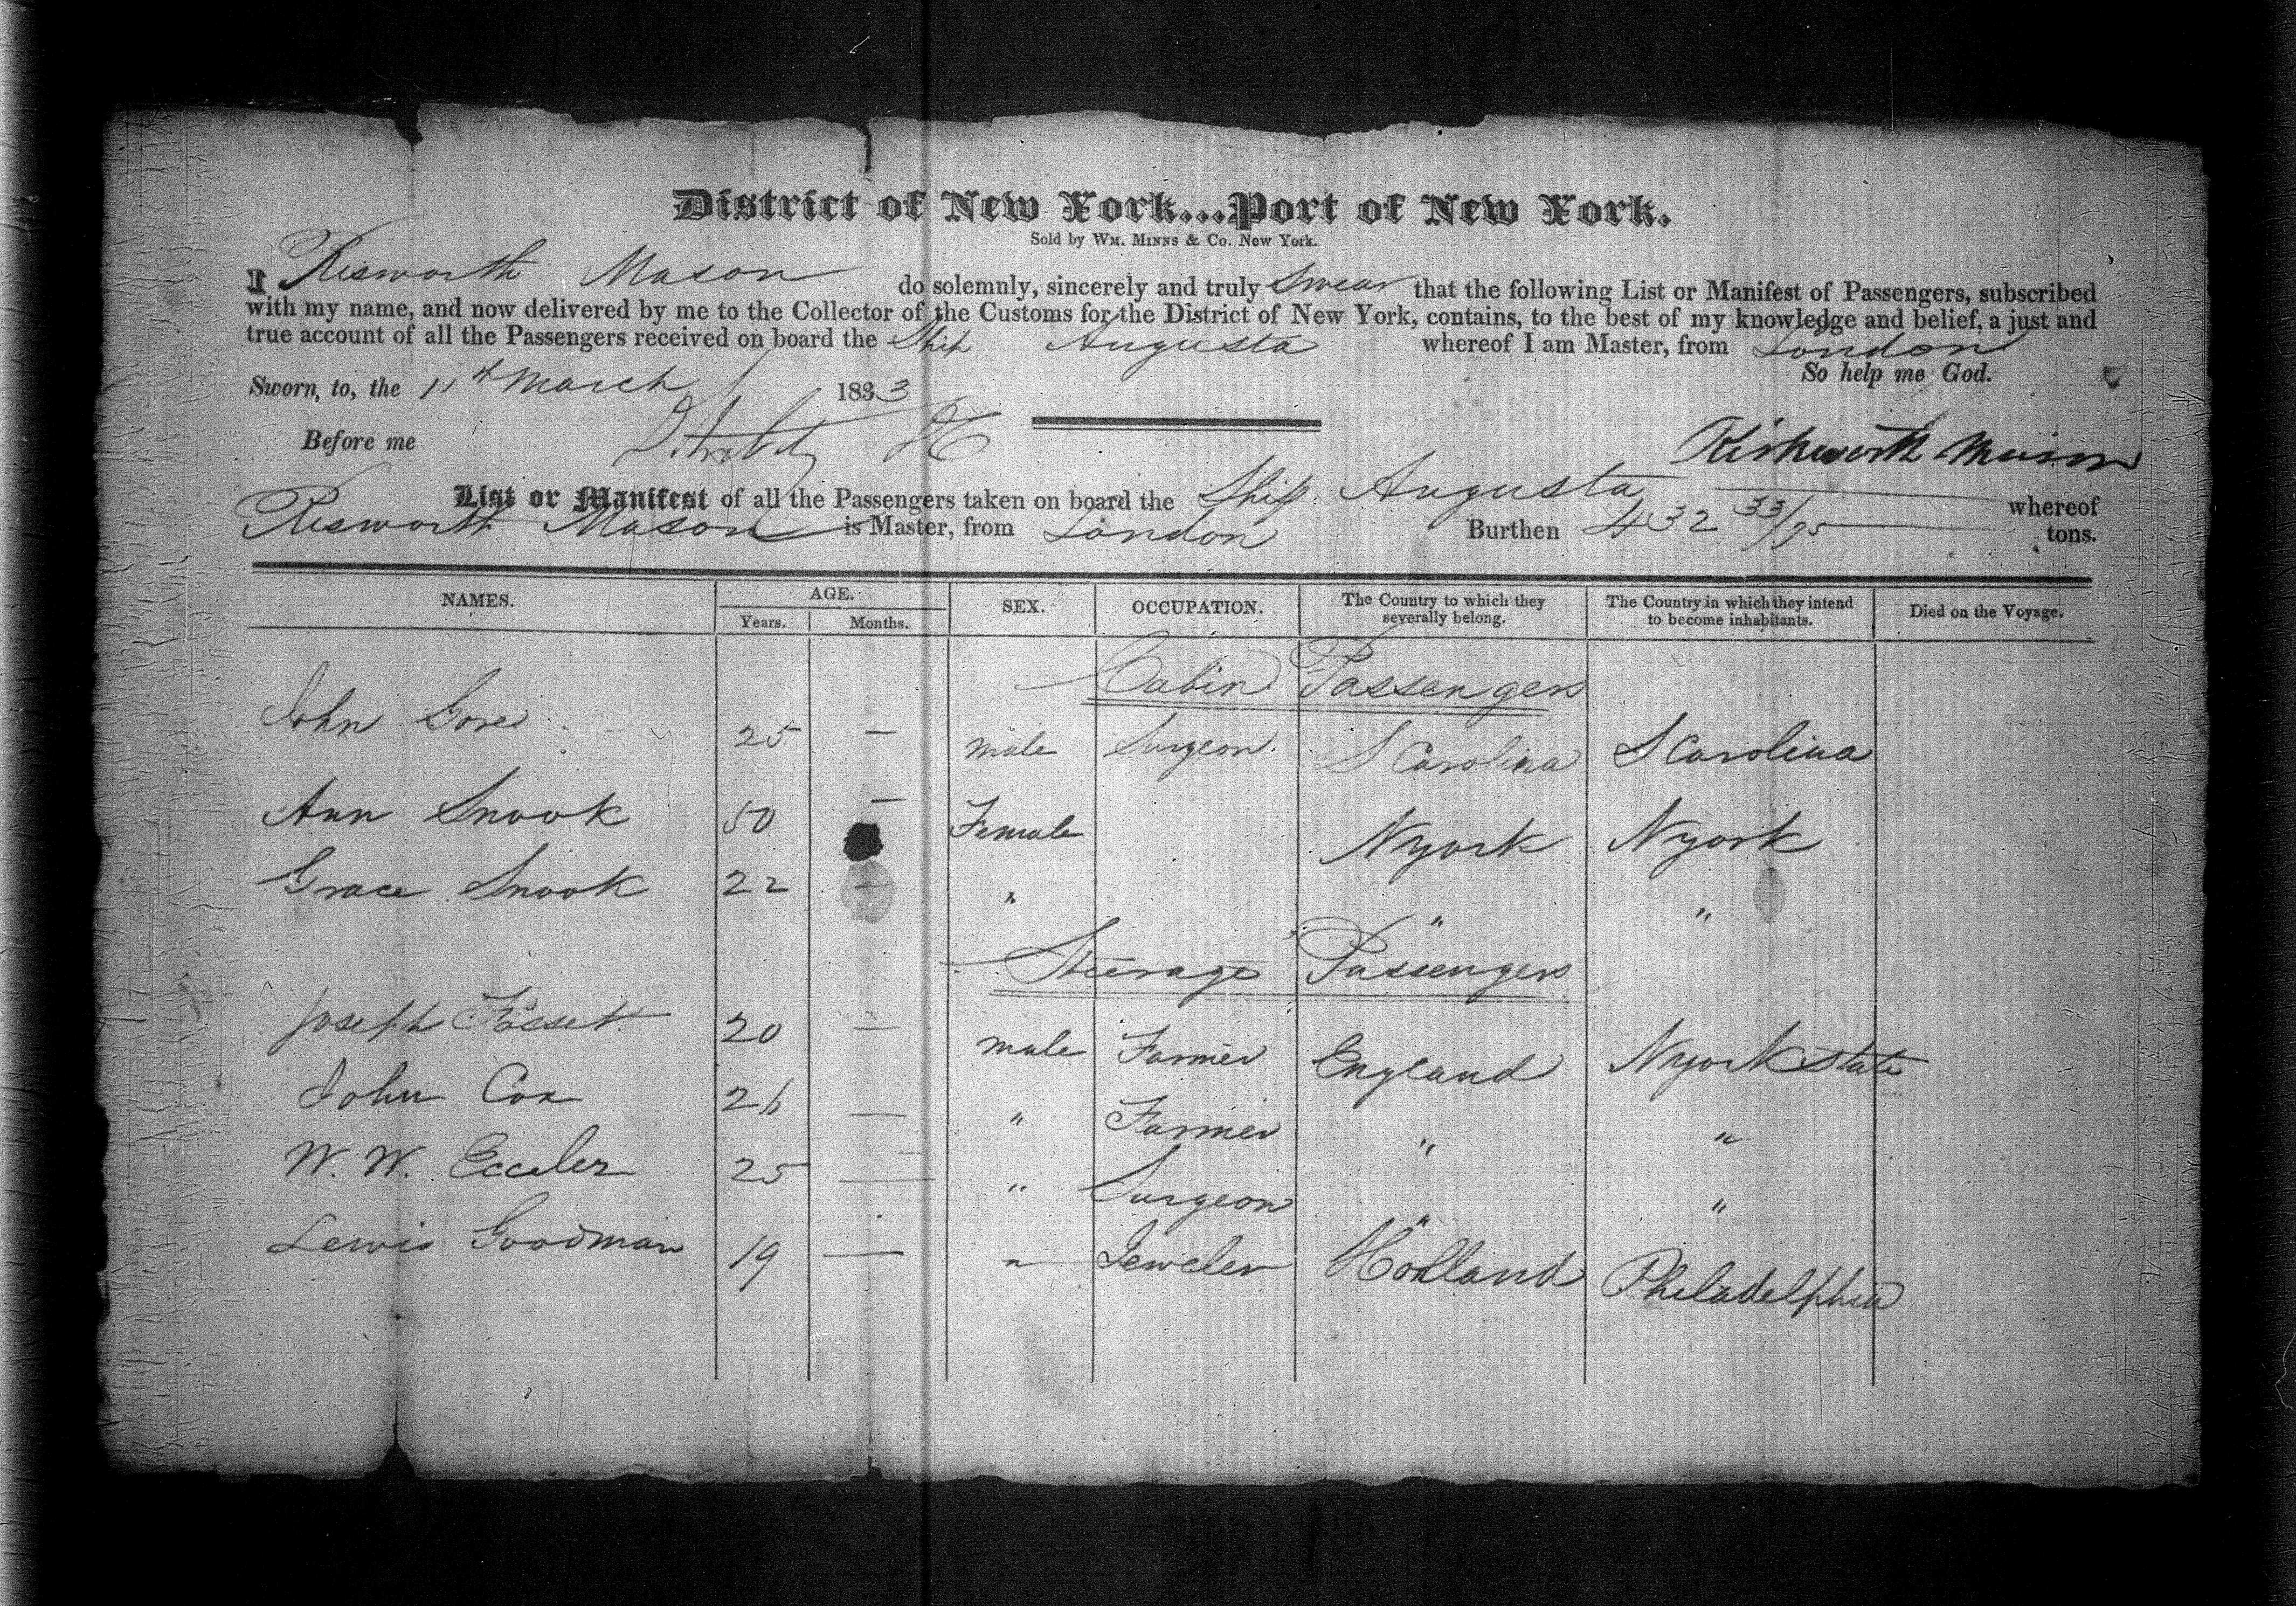 District of New York...Port of New York.
Sold by WM. MINNS & Co. New York.
I Risworth Mason do solemnly, sincerely and truly Swear that the following List or Manifest of Passengers, subscribed
with my name, and now delivered by me to the Collector of the Customs for the District of New York, contains, to the best of my knowledge and belief, a just and
true account of all the Passengers received on board the Ship Augusta whereof I am Master, from London
So help me God.
Sworn, to, the 11th March 1833
Before me
Rishworth Mason
List or Manifest of all the Passengers taken on board the Ship Augusta whereof
Risworth Mason is Master, from London Burthen 432 33/95 tons.
NAMES. AGE. SEX. OCCUPATION. The Country to which they severally belong. The Country in which they intend to become inhabitants. Died on the Voyage.
Years. Months.
Cabin Passengers
John Gore 25 — male Surgeon S Carolina S Carolina
Ann Snook 50 — Female Nyork Nyork
Grace Snook 22 — " " "
Steerage Passengers
Joseph Fosset 20 — male Farmer England Nyork State
John Cox 26 — " Farmer " "
W. W. Eccles 25 — " Surgeon " "
Lewis Goodman 19 — " Jeweler Holland Philadelphia